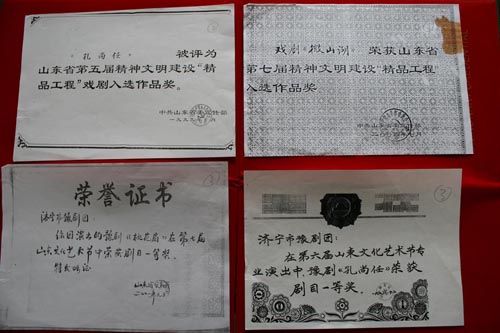 《孔尚任》 被评为
山东省第五届精神文明建设“精
品工程”戏剧入选作品奖。
中共山东省委宣传部
戏剧《微山湖》荣获山东省
第七届精神文明建设“精品工程”
入选作品奖。
中共山东省
荣誉证书
济宁市豫剧团：
你团演出的豫剧《桃花扇》在第七届
山东文化艺术节中荣获剧目一等奖。
特发此证
济宁市豫剧团：
在第六届山东文化艺术节专
业演出中，豫剧《孔尚任》荣获
剧目一等奖。